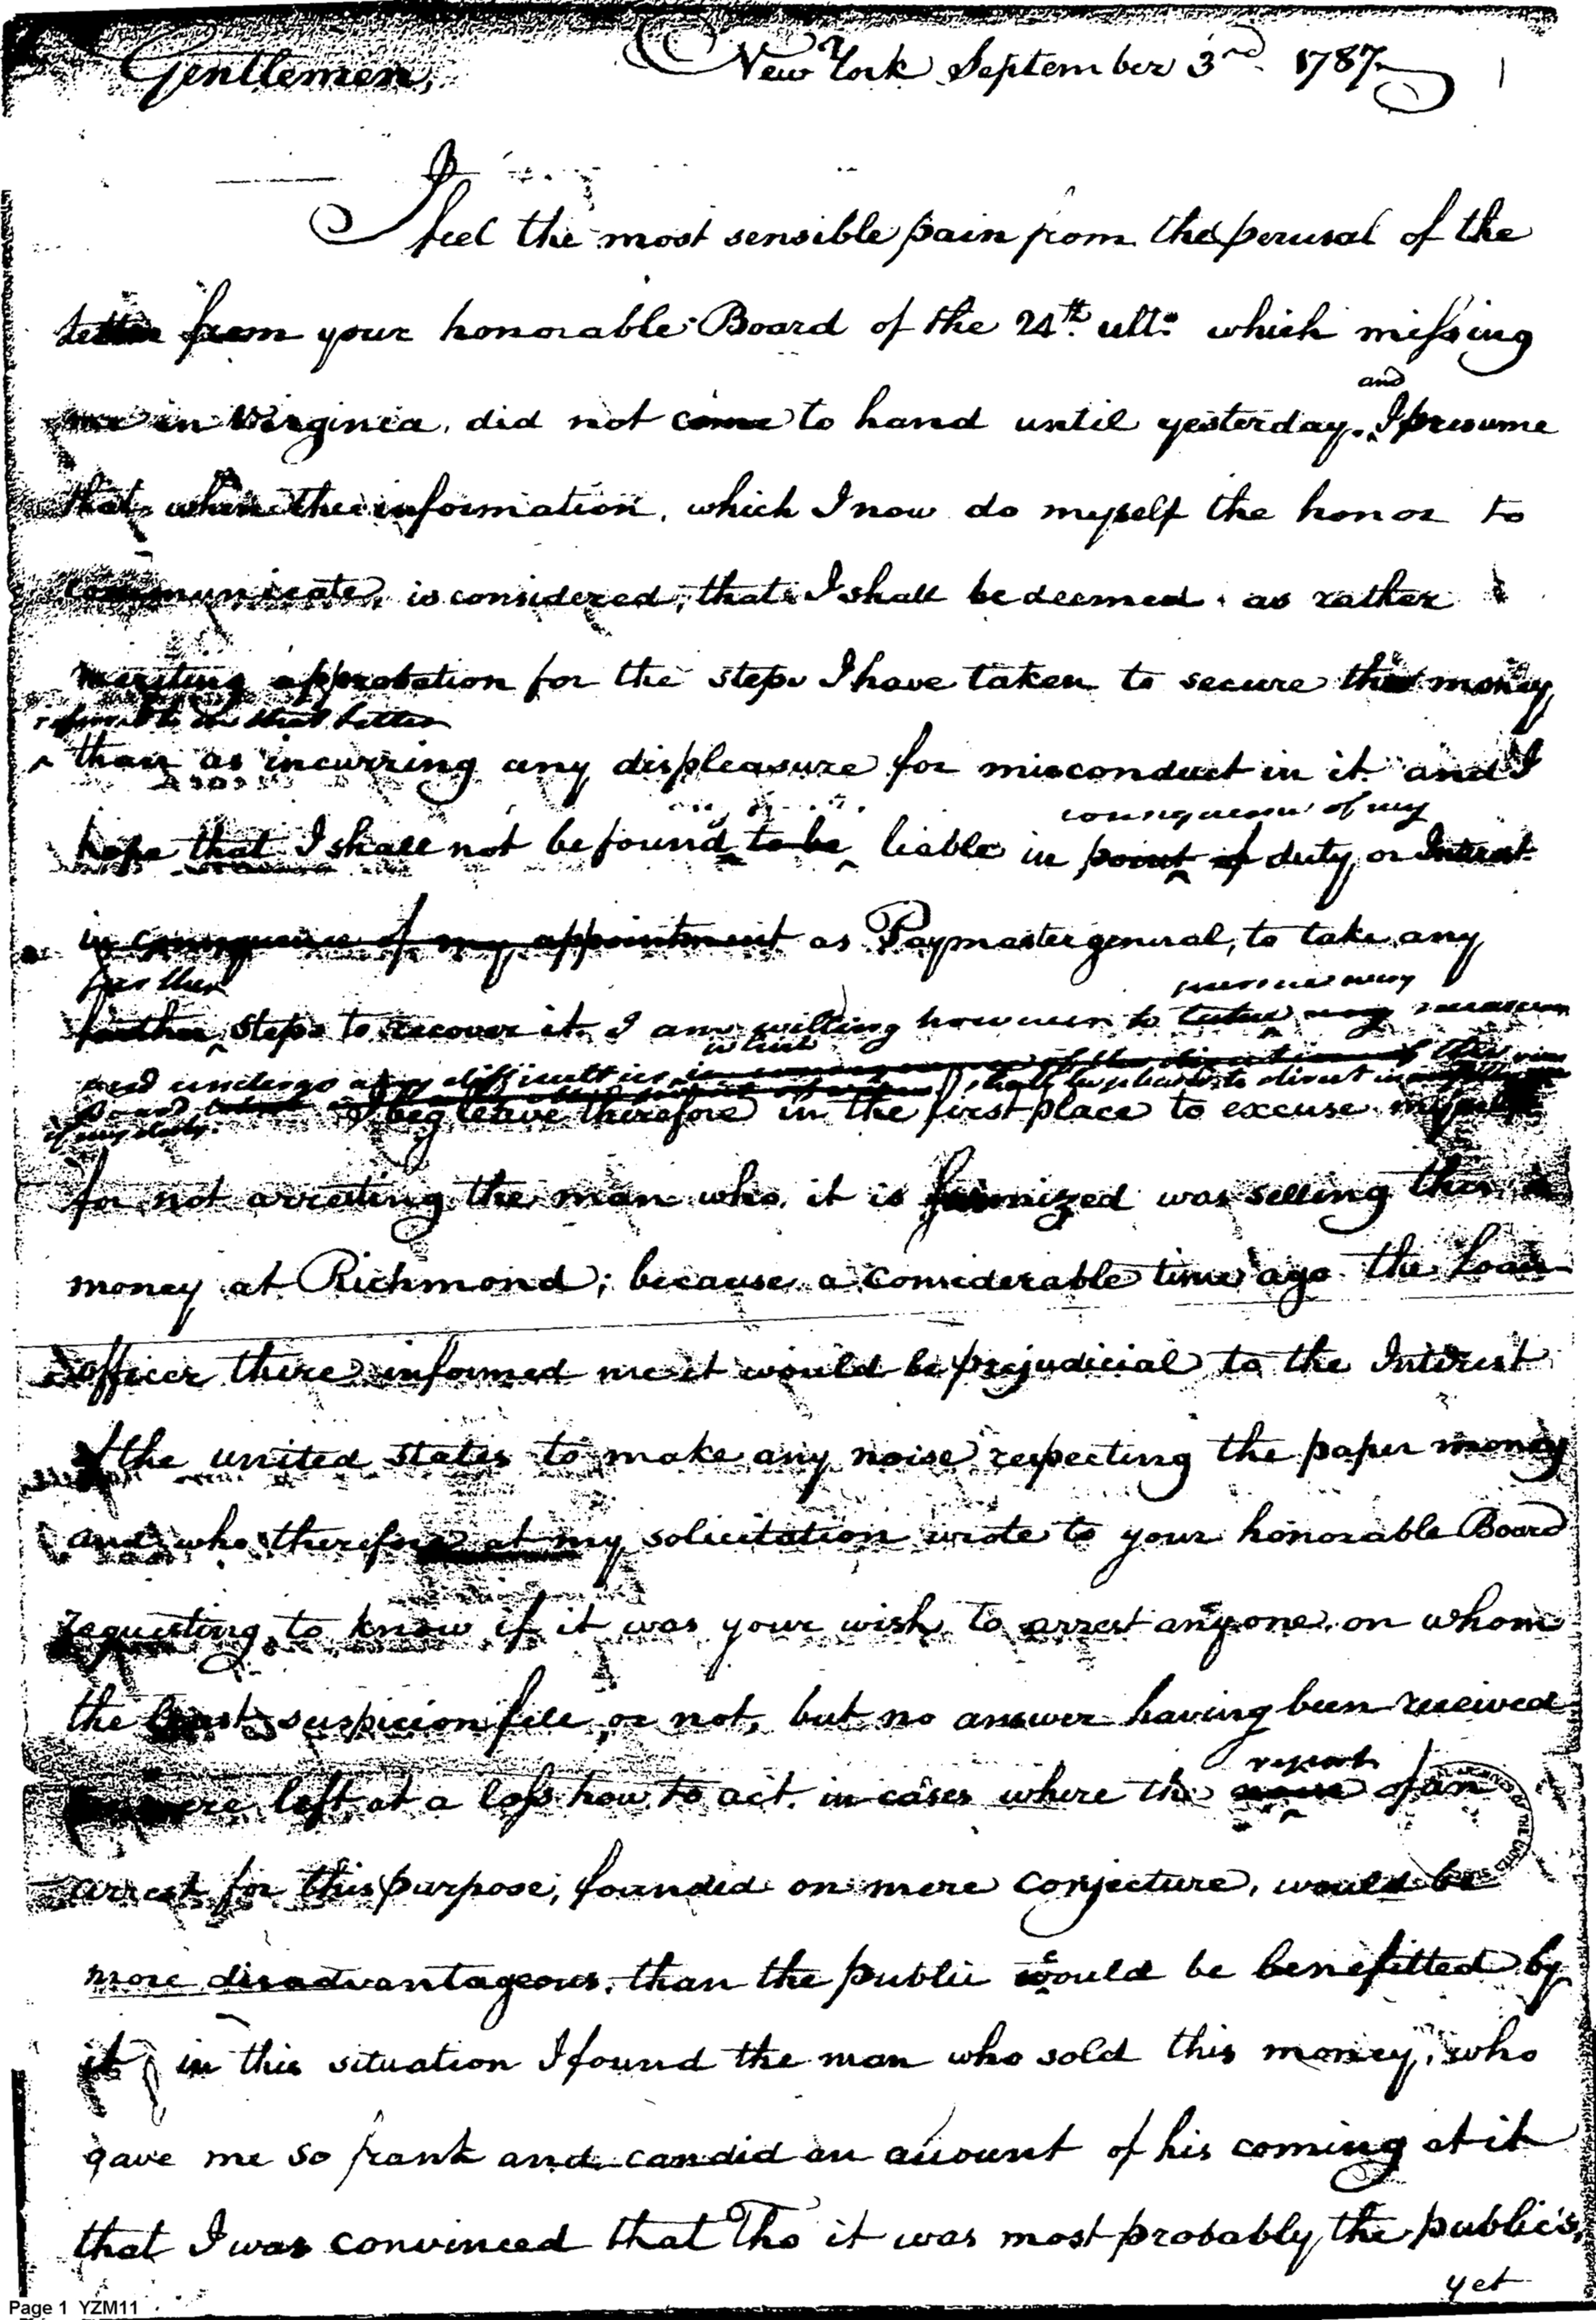 Gentlemen, New York September 3rd. 1787
I feel the most sensible pain from the perusal of the
letter from your honorable Board of the 24th. ulto. which missing
me in Virginia, did not come to hand until yesterday. and I presume
that when the information, which I now do myself the honor to
communicate, is considered, that I shall be deemed as rather
meriting approbation for the steps I have taken to secure the money,
referred to in that letter
than as incurring any displeasure for misconduct in it and I
consequence of my
hope that I shall not be found to be liable in point of duty, or Interest
in consequence of my appointment as Paymaster general, to take any
further
pursue every
further steps to recover it. I am willing however to take any measure
which
and undergo any difficulties
Board shall be pleased to direct in
of my duty. I beg leave therefore in the first place to excuse myself
for not arresting the man who, it is was selling this
money at Richmond; because a considerable time ago the Loan
officer there informed me it would be prejudicial to the Interest
of the united states to make any noise respecting the paper money
and who therefore at my solicitation wrote to your honorable Board
requesting to know if it was your wish to arrest anyone, on whom
the least suspicion fell, or not, but no answer having been received
report
were left at a loss how to act. in cases where the noise of an
arrest for this purpose, founded on mere conjecture, would be
more disadvantageous, than the public would be benefitted by
it in this situation I found the man who sold this money, who
gave me so frank and candid an account of his coming at it
that I was convinced that Tho it was most probably the public's,
yet
Page 1 YZM11